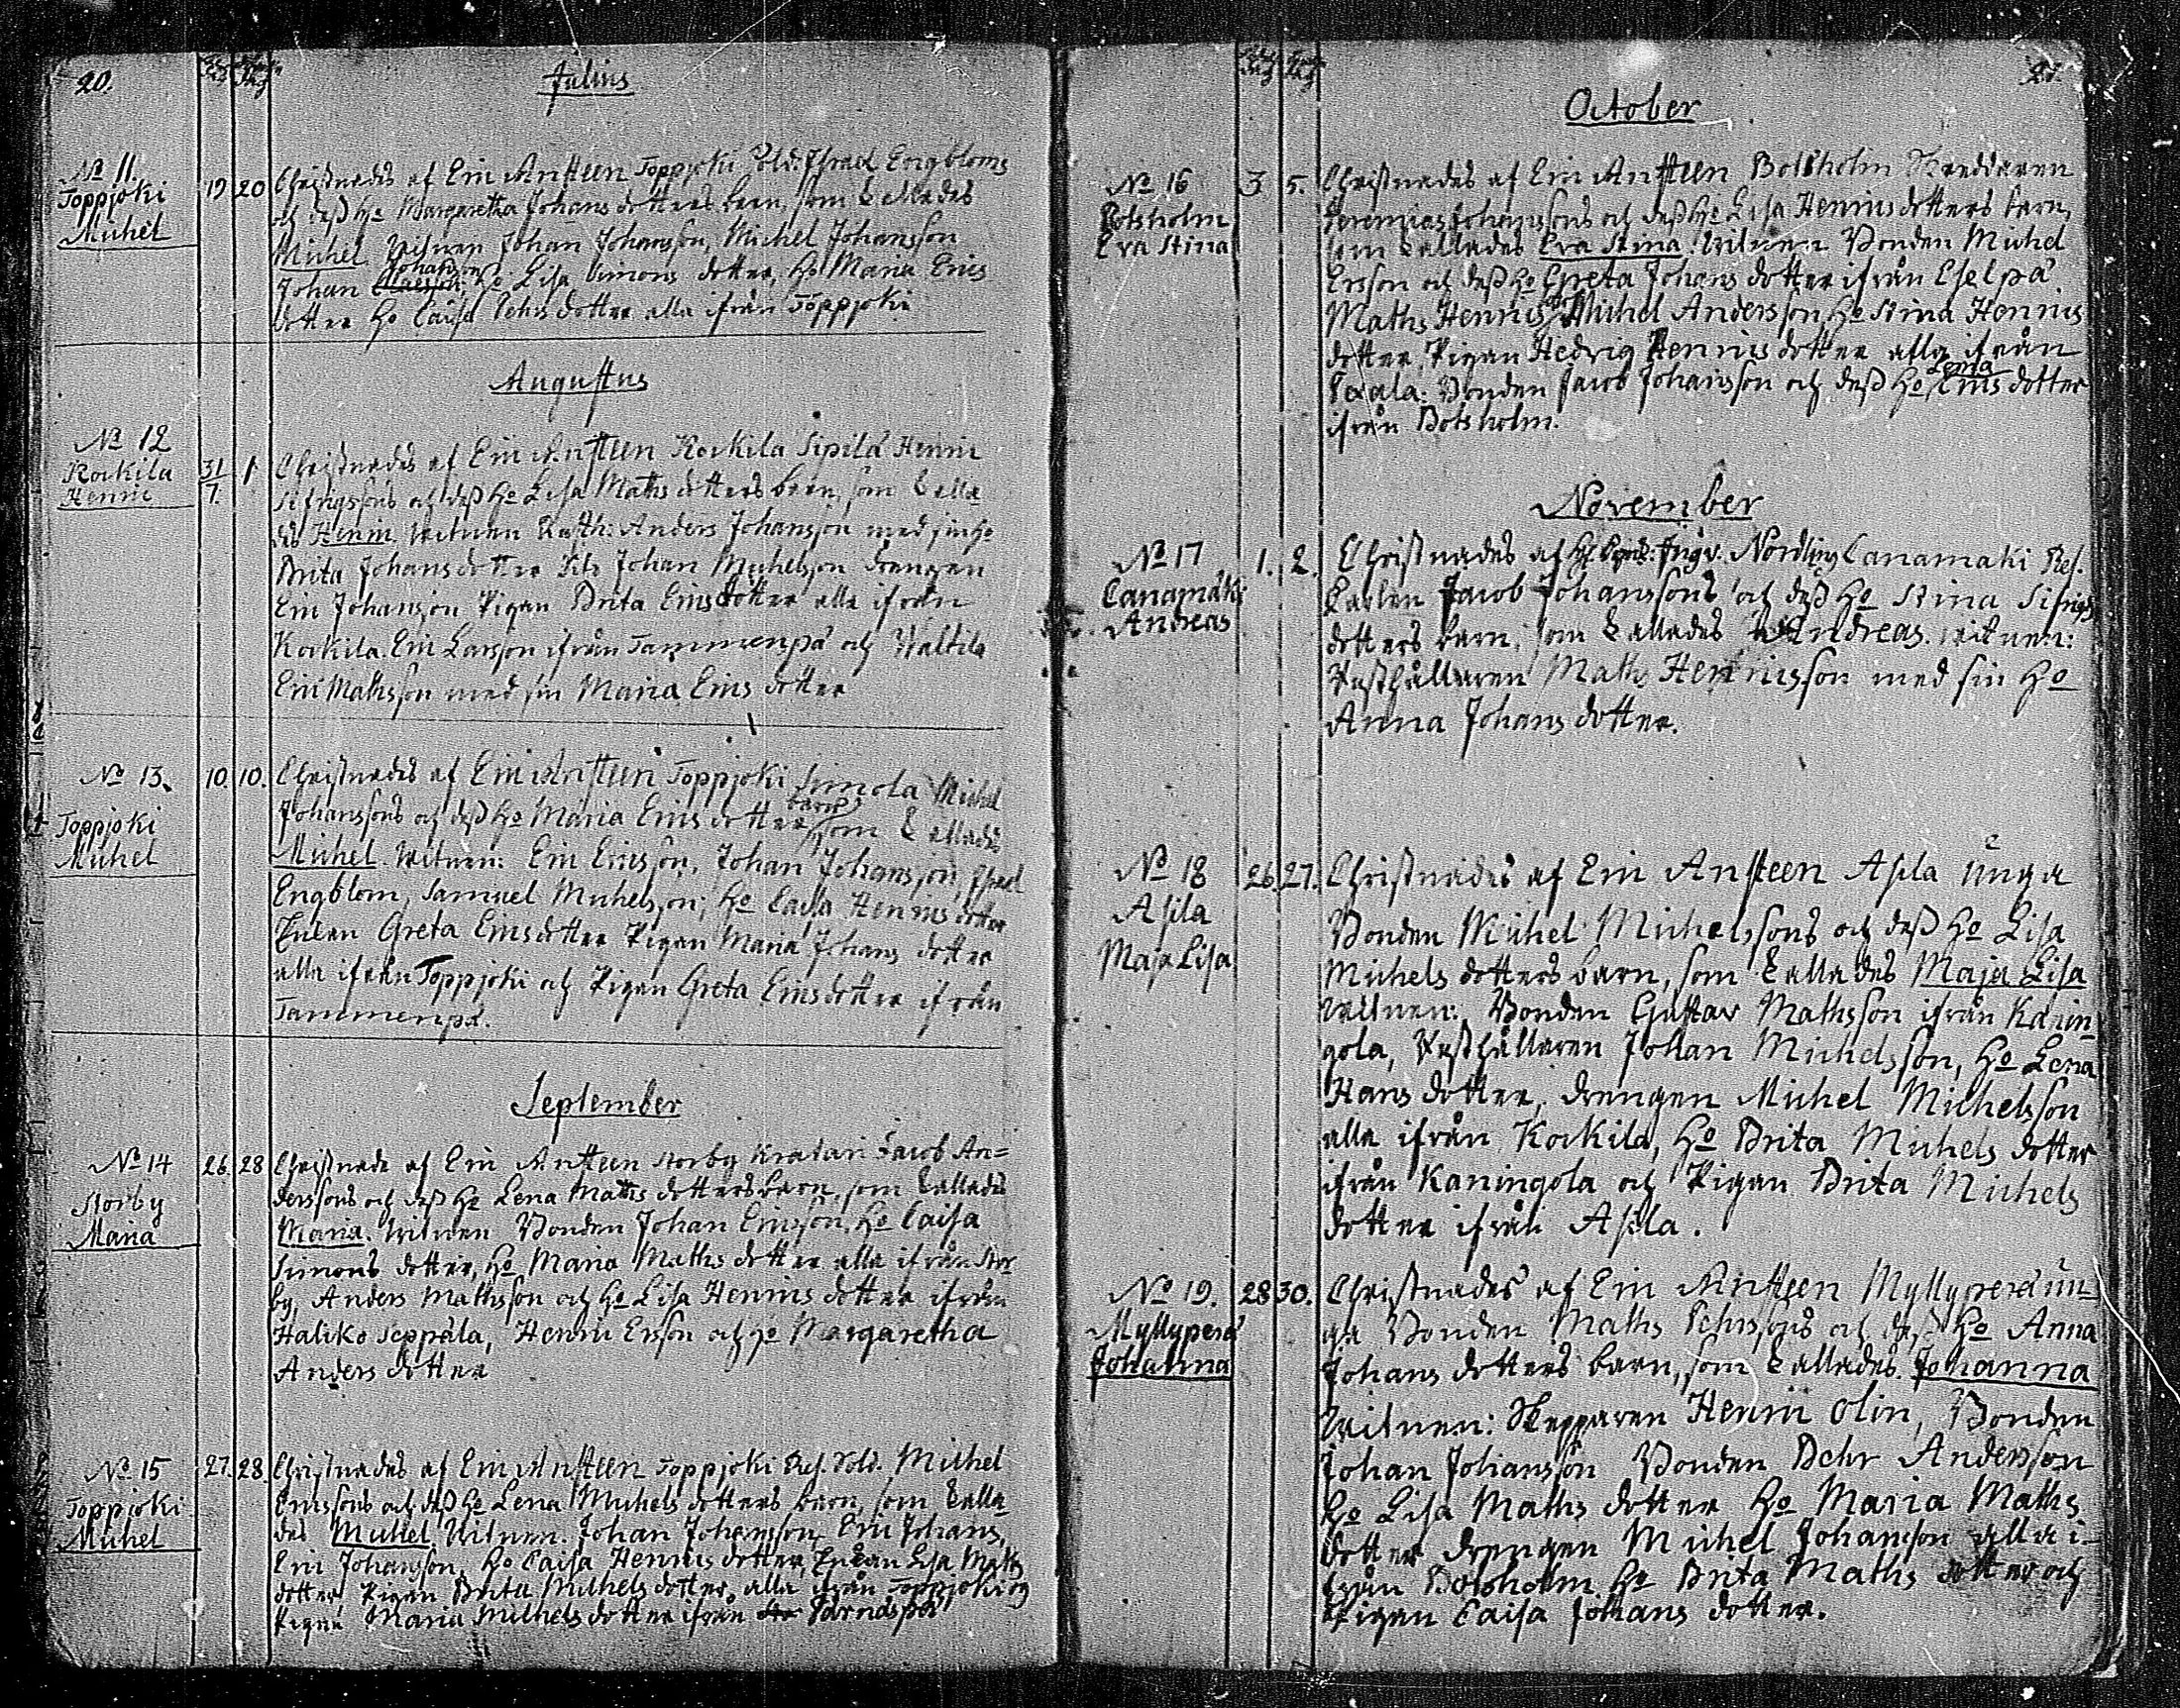 20.
Julius
No 11.
Toppjoki
Michel
19 20
Christnades af Eric Ansteen Toppjoki Sold. Israel Engbloms
och dess Ho Margaretha Johans dotters barn, som kallades
Michel. Witnen Johan Johansson, Michel Johansson
Johan Johansson Ho Lisa Simons dotter, Ho Maria Erics
dotter Ho Caisa Pehrs dotter alla ifrån Toppjoki
Augustus
No 12
Kockila
Henric
31/7. 1
Christnades af Eric Ansteen Kockila Sipilä Henric
Sifrigssons och dess Ho Lisa Maths dotters barn, som kalla
des Henric. Witnen Rusth: Anders Johansson med sin Ho
Brita Johans dotter Johan Michelsson drengen
Eric Johansson Pigan Brita Erics dotter alla ifrån
Kockila. Eric Larsson ifrån Tammenpä och Waltila
Eric Mathsson med sin Maria Erics dotter
No 13.
Toppjoki
Michel
10. 10.
Christnades af Eric Ansteen Toppjoki Simola Michel
Johanssons och dess Ho Maria Erics dotters barn som kallades
Michel. Witnen: Eric Ericsson, Johan Johansson, Israel
Engblom, Samuel Michelsson, Ho Caisa Henrics dotter
Enkan Greta Ericsdotter Pigan Maria Johans dotter
alla ifrån Toppjoki och Pigan Greta Ericsdotter ifrån
Tammenpä.
September
No 14
Storby
Maria
26. 28
Christnade af Eric Ansteen Storby Kratari Jacob An=
derssons och dess Ho Lena Maths dotters barn, som kallades
Maria. Witnen Bonden Johan Ericsson, Ho Caisa
Simons dotter, Ho Maria Maths dotter alla ifrån Stor
by, Anders Mathsson och Ho Lisa Henrics dotter ifrån
Haliko Seppälä, Henric Ersson och Ho Margaretha
Anders dotter
No 15
Toppjoki
Michel
27. 28
Christnades af Eric Ansteen Toppjoki Ref. Sold. Michel
Ericssons och dess Ho Lena Michels dotters barn, som kalla
des Michel. Witnen. Johan Johansson, Eric Johans,
Eric Johansson, Ho Caisa Henrics dotter, Enkan Lisa Maths
dotter Pigan Brita Michels dotter, alla ifrån Toppjoki och
Pigan Maria Michels dotter ifrån Järnäspä
21.
October
No 16
Botsholm
Eva Stina
3 5.
Christnades af Eric Ansteen Botsholm Skreddaren
Jeremias Johanssons och dess Ho Lisa Henrics dotters barn,
som kallades Eva Stina. Witnen Bonden Michel
Ersson och dess Ho Greta Johans dotter ifrån Eselpä
Maths Henrics Michel Andersson, Ho Stina Henrics
dotter, Pigan Hedvig Henrics dotter alla ifrån
Bonden Jacob Johansson och dess Ho Lena Erics dotter
ifrån Botsholm.
November
No 17
Canamäki
Andreas
1. 2.
Christnades af Nordling Canamäki Ref.
Karlen Jacob Johanssons och dess Ho Stina Sifrigs
dotters barn, som kallades Andreas. Witnen:
Rusthållaren Maths Henricsson med sin Ho
Anna Johans dotter.
No 18
Asila
Maja Lisa
26. 27.
Christnades af Eric Ansteen Asila unga
Bonden Michel Michelssons och dess Ho Lisa
Michels dotters barn, som kallades Maja Lisa
Witnen: Bonden Gustav Mathsson ifrån Karin
gola, Rusthållaren Johan Michelsson, Ho Lena
Hans dotter, drengen Michel Michelsson
alla ifrån Kockila, Ho Brita Michels dotter
ifrån Karingola och Pigan Brita Michels
dotter ifrån Asila.
No 19.
Myllyperä
Johanna
28 30.
Christnades af Eric Ansteen Myllyperä un=
ga Bonden Maths Pehrssons och dess Ho Anna
Johans dotters barn, som kallades. Johanna
Witnen: Skepparen Henric Olin, Bonden
Johan Johansson Bonden Pehr Andersson
Ho Lisa Maths dotter Ho Maria Maths
dotter drengen Michel Johansson alla i=
från Botsholm Ho Brita Maths dotter och
Pigan Caisa Johans dotter.